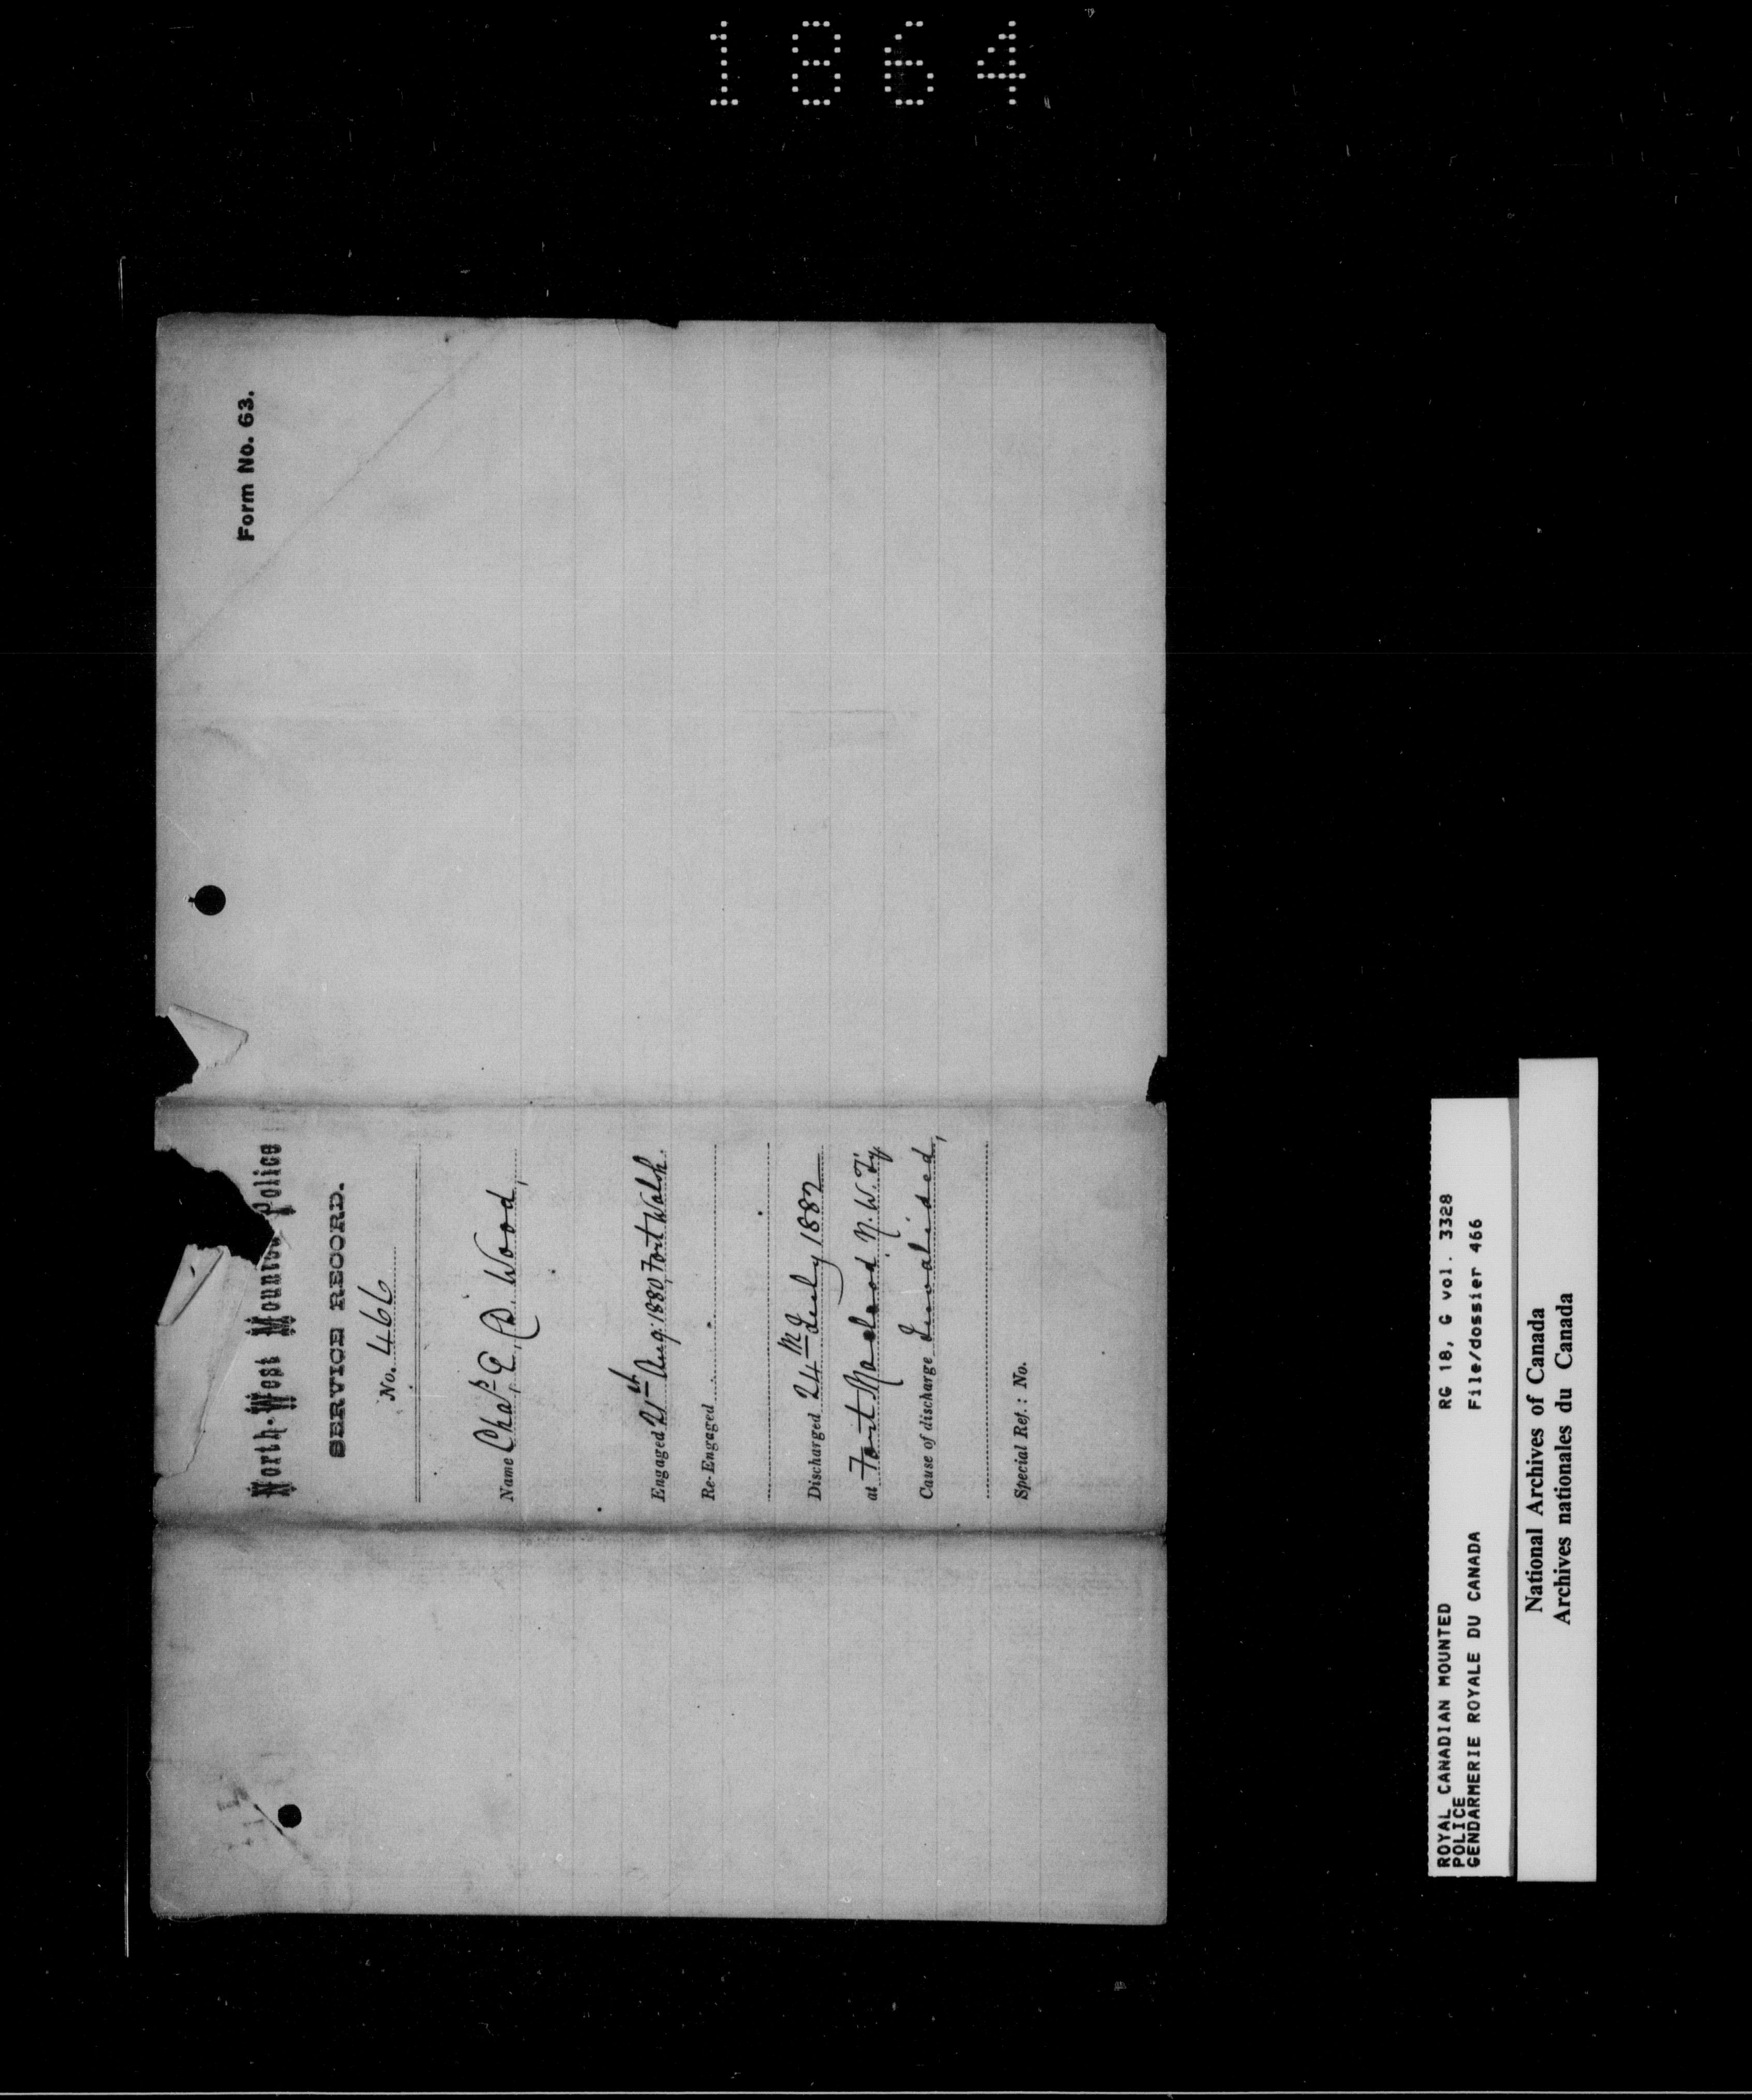 1864
Form No. 63.
North-West Mounted Police
SERVICE RECORD.
No. 466
Name Chas. E. D. Wood,
Engaged 21st Aug. 1880, Fort Walsh.
Re-Engaged
Discharged 24th July 1882
at Fort Macleod N.W.Ty
Cause of discharge Invalided,
Special Ref.: No.
ROYAL CANADIAN MOUNTED RG 18, G vol. 3328
POLICE
GENDARMERIE ROYALE DU CANADA File/dossier 466
National Archives of Canada
Archives nationales du Canada